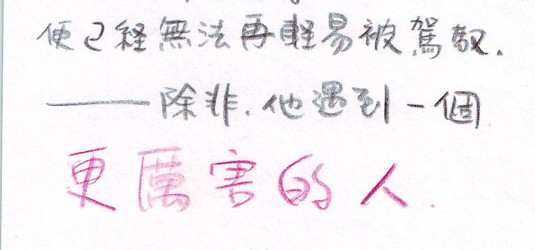 便已経無法再輕易被駕馭.
——除非.他遇到一個
更厲害的人.